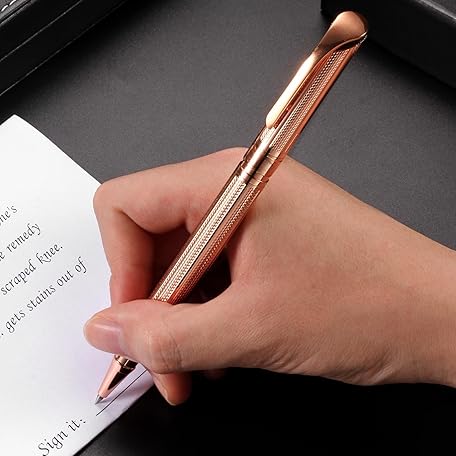 ne's
e remedy
scraped knee.
. gets stains out of
Sign it: